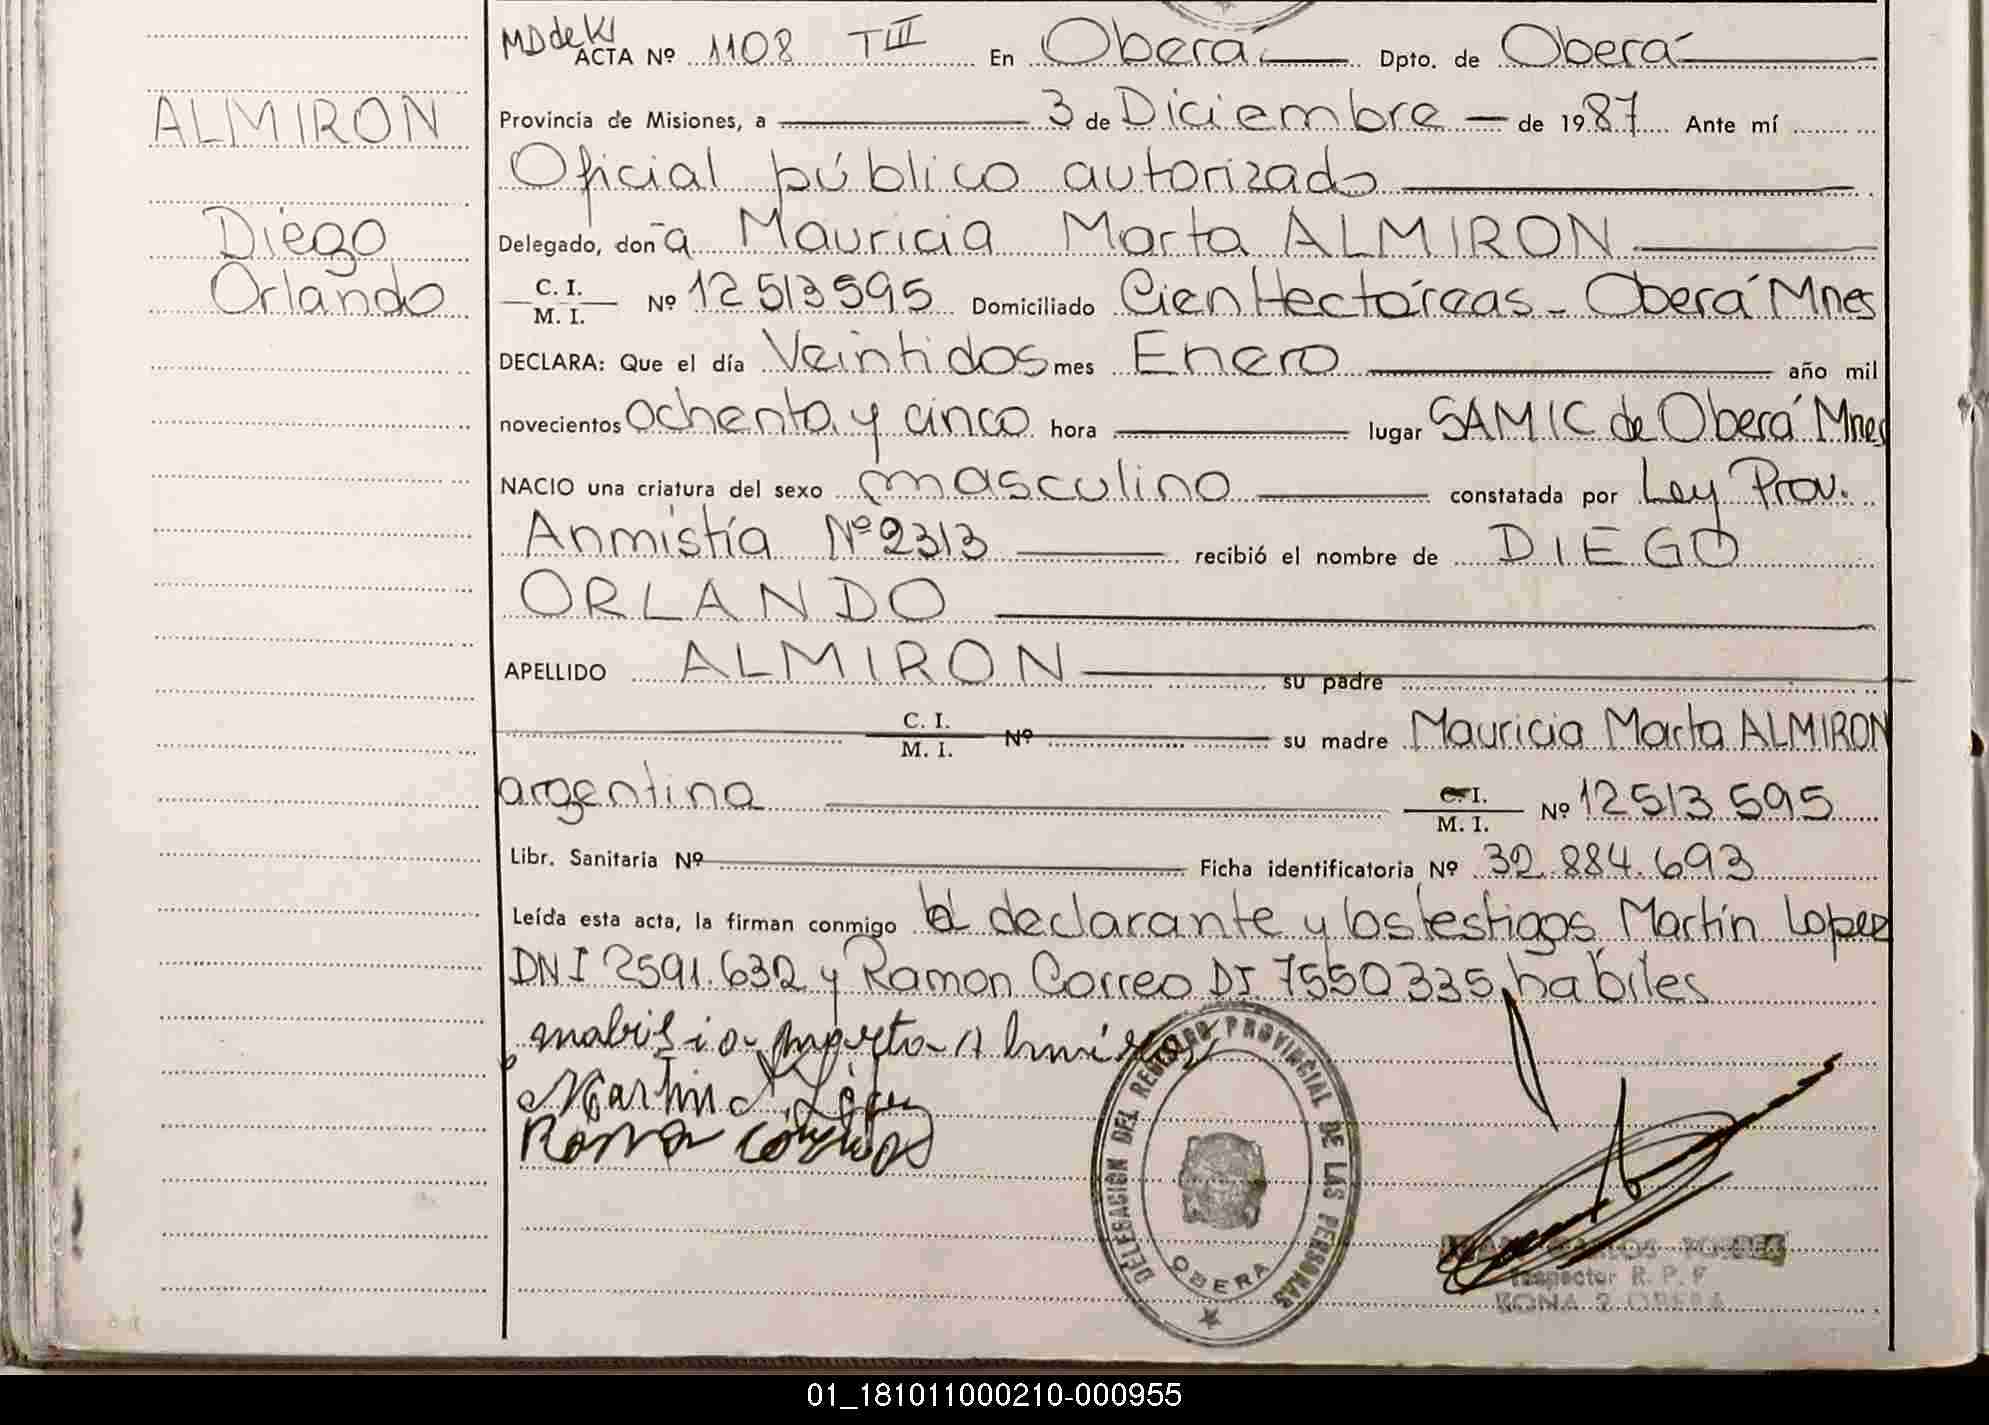 MD de KI
ACTA Nº 1108 TIII En Oberá Dpto. de Oberá
ALMIRON
Provincia de Misiones, a 3 de Diciembre de 1987 Ante mí
Oficial público autorizado
Diego
Delegado, don a Mauricia Marta ALMIRON
Orlando
C. I.
M. I. Nº 12513595 Domiciliado Cien Hectáreas - Oberá Mnes
DECLARA: Que el día Veintidos mes Enero año mil
novecientos ochenta y cinco hora lugar SAMIC de Oberá Mnes
NACIO una criatura del sexo masculino constatada por Ley Prov.
Anmistía Nº 2313 recibió el nombre de DIEGO
ORLANDO
APELLIDO ALMIRON su padre
C. I.
M. I. Nº su madre Mauricia Marta ALMIRON
argentina C. I.
M. I. Nº 12513595
Libr. Sanitaria Nº Ficha identificatoria Nº 32.884.693
Leída esta acta, la firman conmigo el declarante y los testigos Martín Lopez
DNI 2591.632 y Ramon Correo DI 7550335, habiles
DELEGACION DEL REGISTRO PROVINCIAL DE LAS PERSONAS
OBERA
Inspector R. P. P
ZONA 2 OBERA
01_181011000210-000955